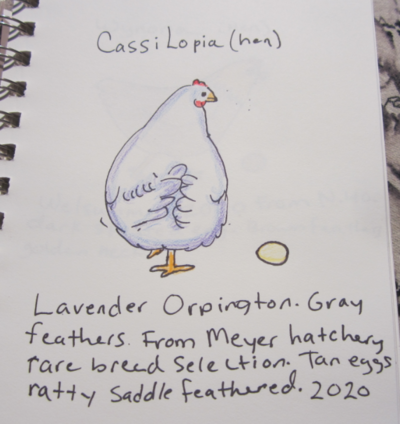 CassiLopia (hen)
Lavender Orpington. Gray
feathers. From Meyer hatchery
rare breed Selection. Tan eggs
ratty Saddle feathered. 2020